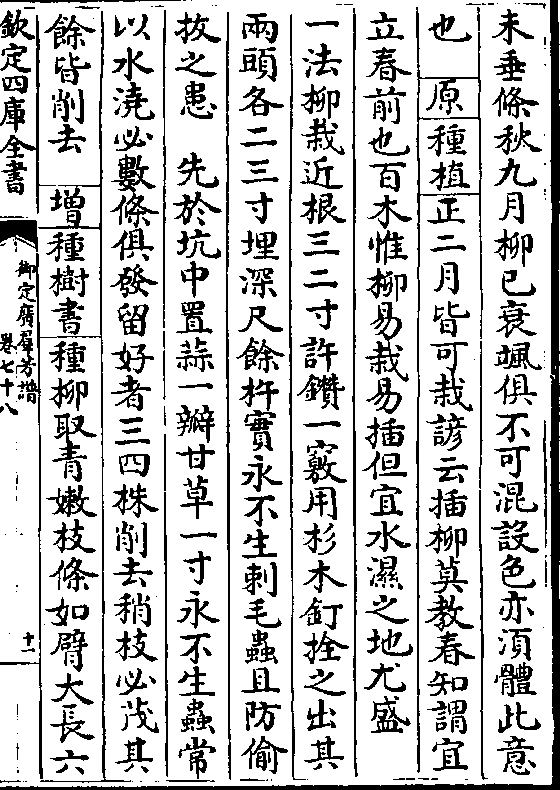 未垂條秋九月柳已衰颯俱不可混設色亦須體此意
也　原種植正二月皆可栽諺云插柳莫教春知謂宜
立春前也百木惟柳易栽易插但宜水濕之地尤盛
一法柳栽近根三二寸許鑽一竅用杉木釘拴之出其
兩頭各二三寸埋深尺餘杵實永不生刺毛蟲且防偷
拔之患　先於坑中置蒜一瓣甘草一寸永不生蟲常
以水澆必數條俱發留好者三四株削去稍枝必茂其
餘皆削去　增種樹書種柳取青嫩枝條如臂大長六
欽定四庫全書
御定廣羣芳譜
卷七十八
十一